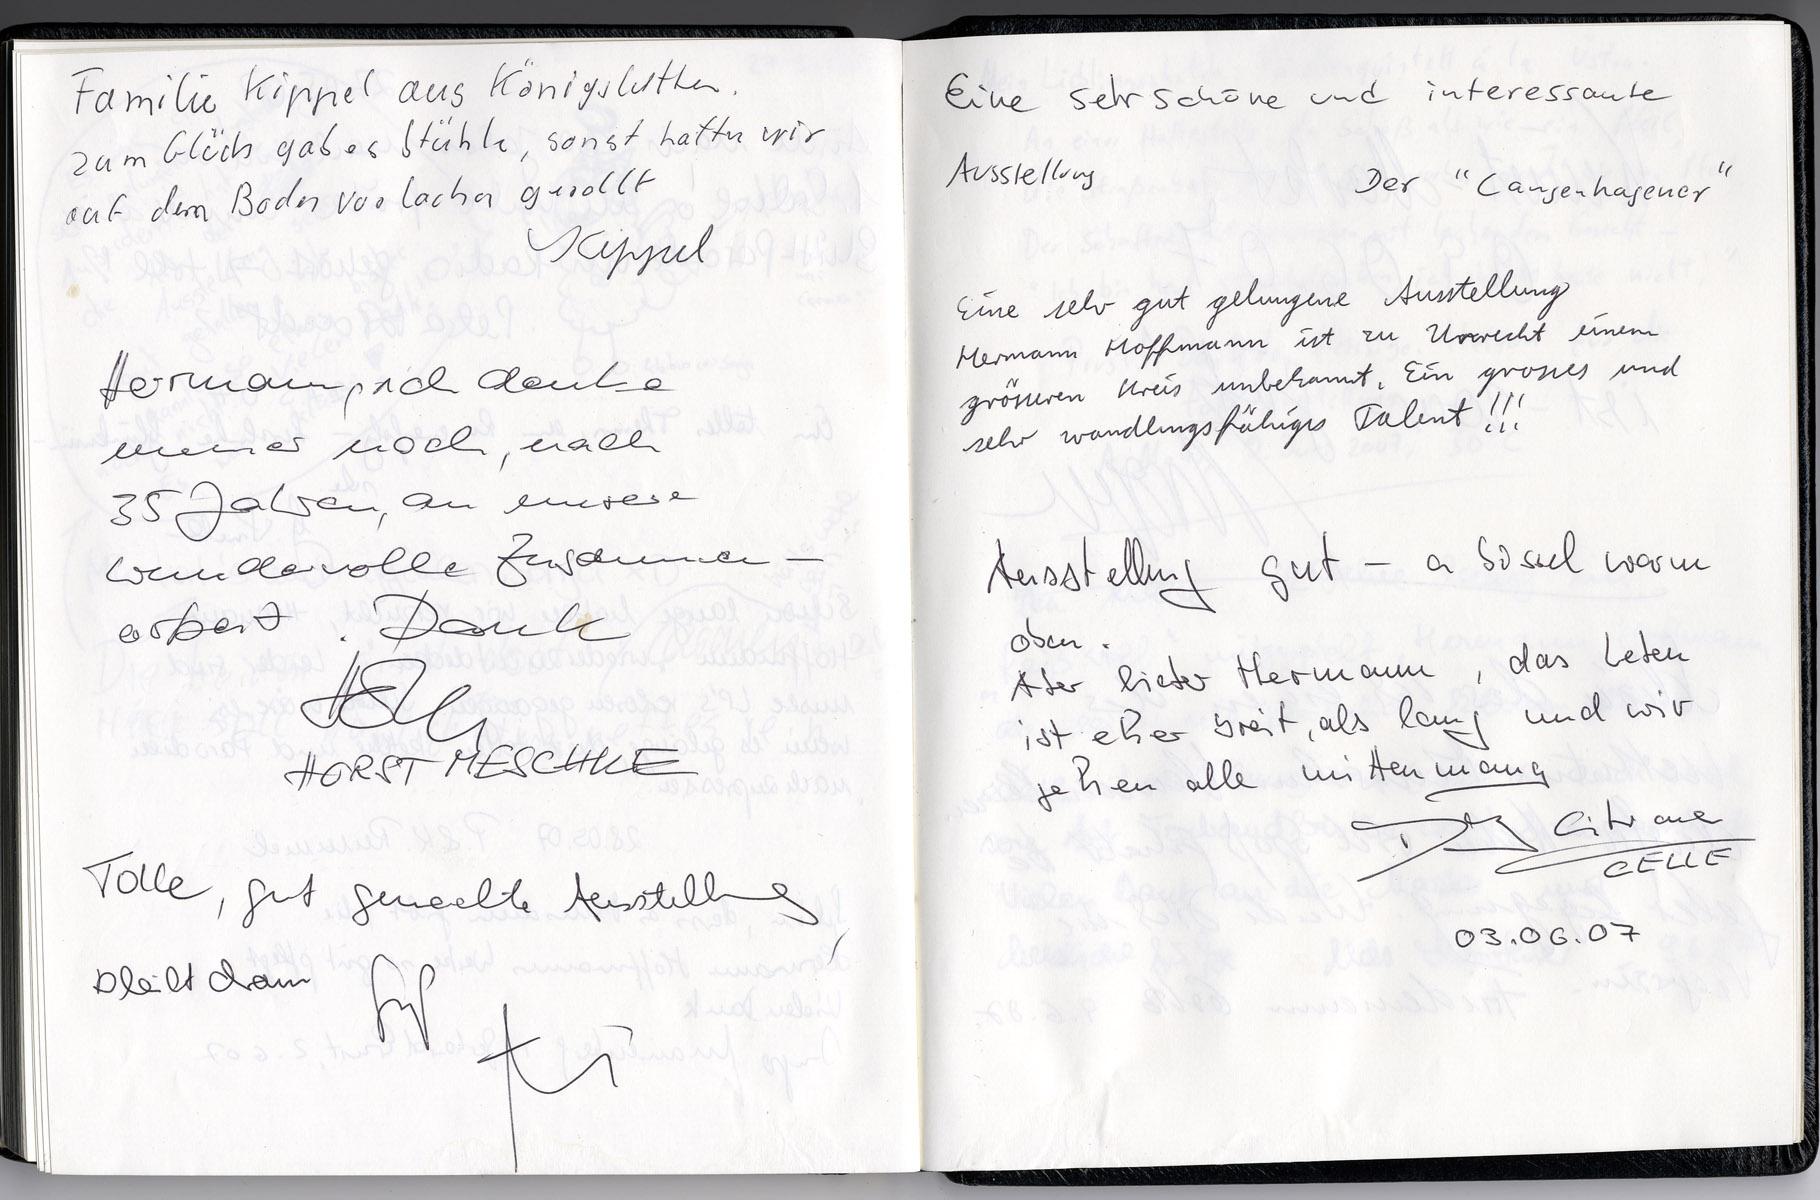 Familie Kippel aus Königslutter.
zum Glück gab es Stühle, sonst hatten wir
auf dem Boden vor lachen gerollt
Kippel
Hermann, ich danke
immer noch, nach
35 Jahren, an unsere
wundervolle Zusammen-
arbeit. Dank
HORST MESCHKE
Tolle, gut gemachte Ausstellung,
bleibt dran
Eine sehr schöne und interessante
Ausstellung
Der "Langenhagener"
Eine sehr gut gelungene Ausstellung
Hermann Hoffmann ist zu Unrecht einem
grösseren Kreis unbekannt. Ein grosses und
sehr wandlungsfähiges Talent!!!
Ausstellung gut - a bissel warm
oben.
Aber lieber Hermann, das Leben
ist eher breit, als lang und wir
gehen alle mittenmang
Citrone
CELLE
03.06.07